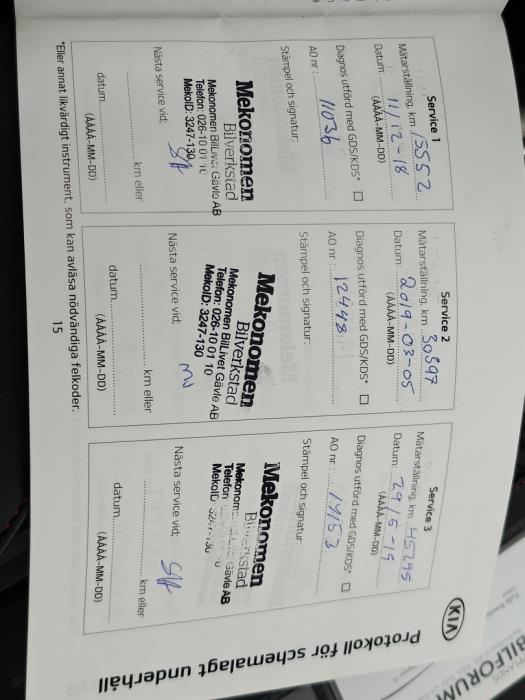 KIA
Protokoll för schemalagt underhåll
Service 1
Mätarställning, km 15552
Datum: 11/12-18
(ÅÅÅÅ-MM-DD)
Diagnos utförd med GDS/KDS* ☐
AO nr : 11036
Stämpel och signatur:
Mekonomen
Bilverkstad
Mekonomen BilLivet Gävle AB
Telefon: 026-10 01 10
MekoID: 3247-130
Nästa service vid;
km eller
datum
(ÅÅÅÅ-MM-DD)
Service 2
Mätarställning, km 30897
Datum: 2019-03-05
(ÅÅÅÅ-MM-DD)
Diagnos utförd med GDS/KDS* ☐
AO nr : 12448
Stämpel och signatur:
Mekonomen
Bilverkstad
Mekonomen BilLivet Gävle AB
Telefon: 026-10 01 10
MekoID: 3247-130
Nästa service vid;
km eller
datum
(ÅÅÅÅ-MM-DD)
Service 3
Mätarställning, km 45295
Datum: 29/5-19
(ÅÅÅÅ-MM-DD)
Diagnos utförd med GDS/KDS* ☐
AO nr : 14153
Stämpel och signatur:
Mekonomen
Bilverkstad
Gävle AB
Telefon
MekoID: 3247-130
Nästa service vid;
km eller
datum
(ÅÅÅÅ-MM-DD)
*Eller annat likvärdigt instrument, som kan avläsa nödvändiga felkoder.
15
BILFORUM